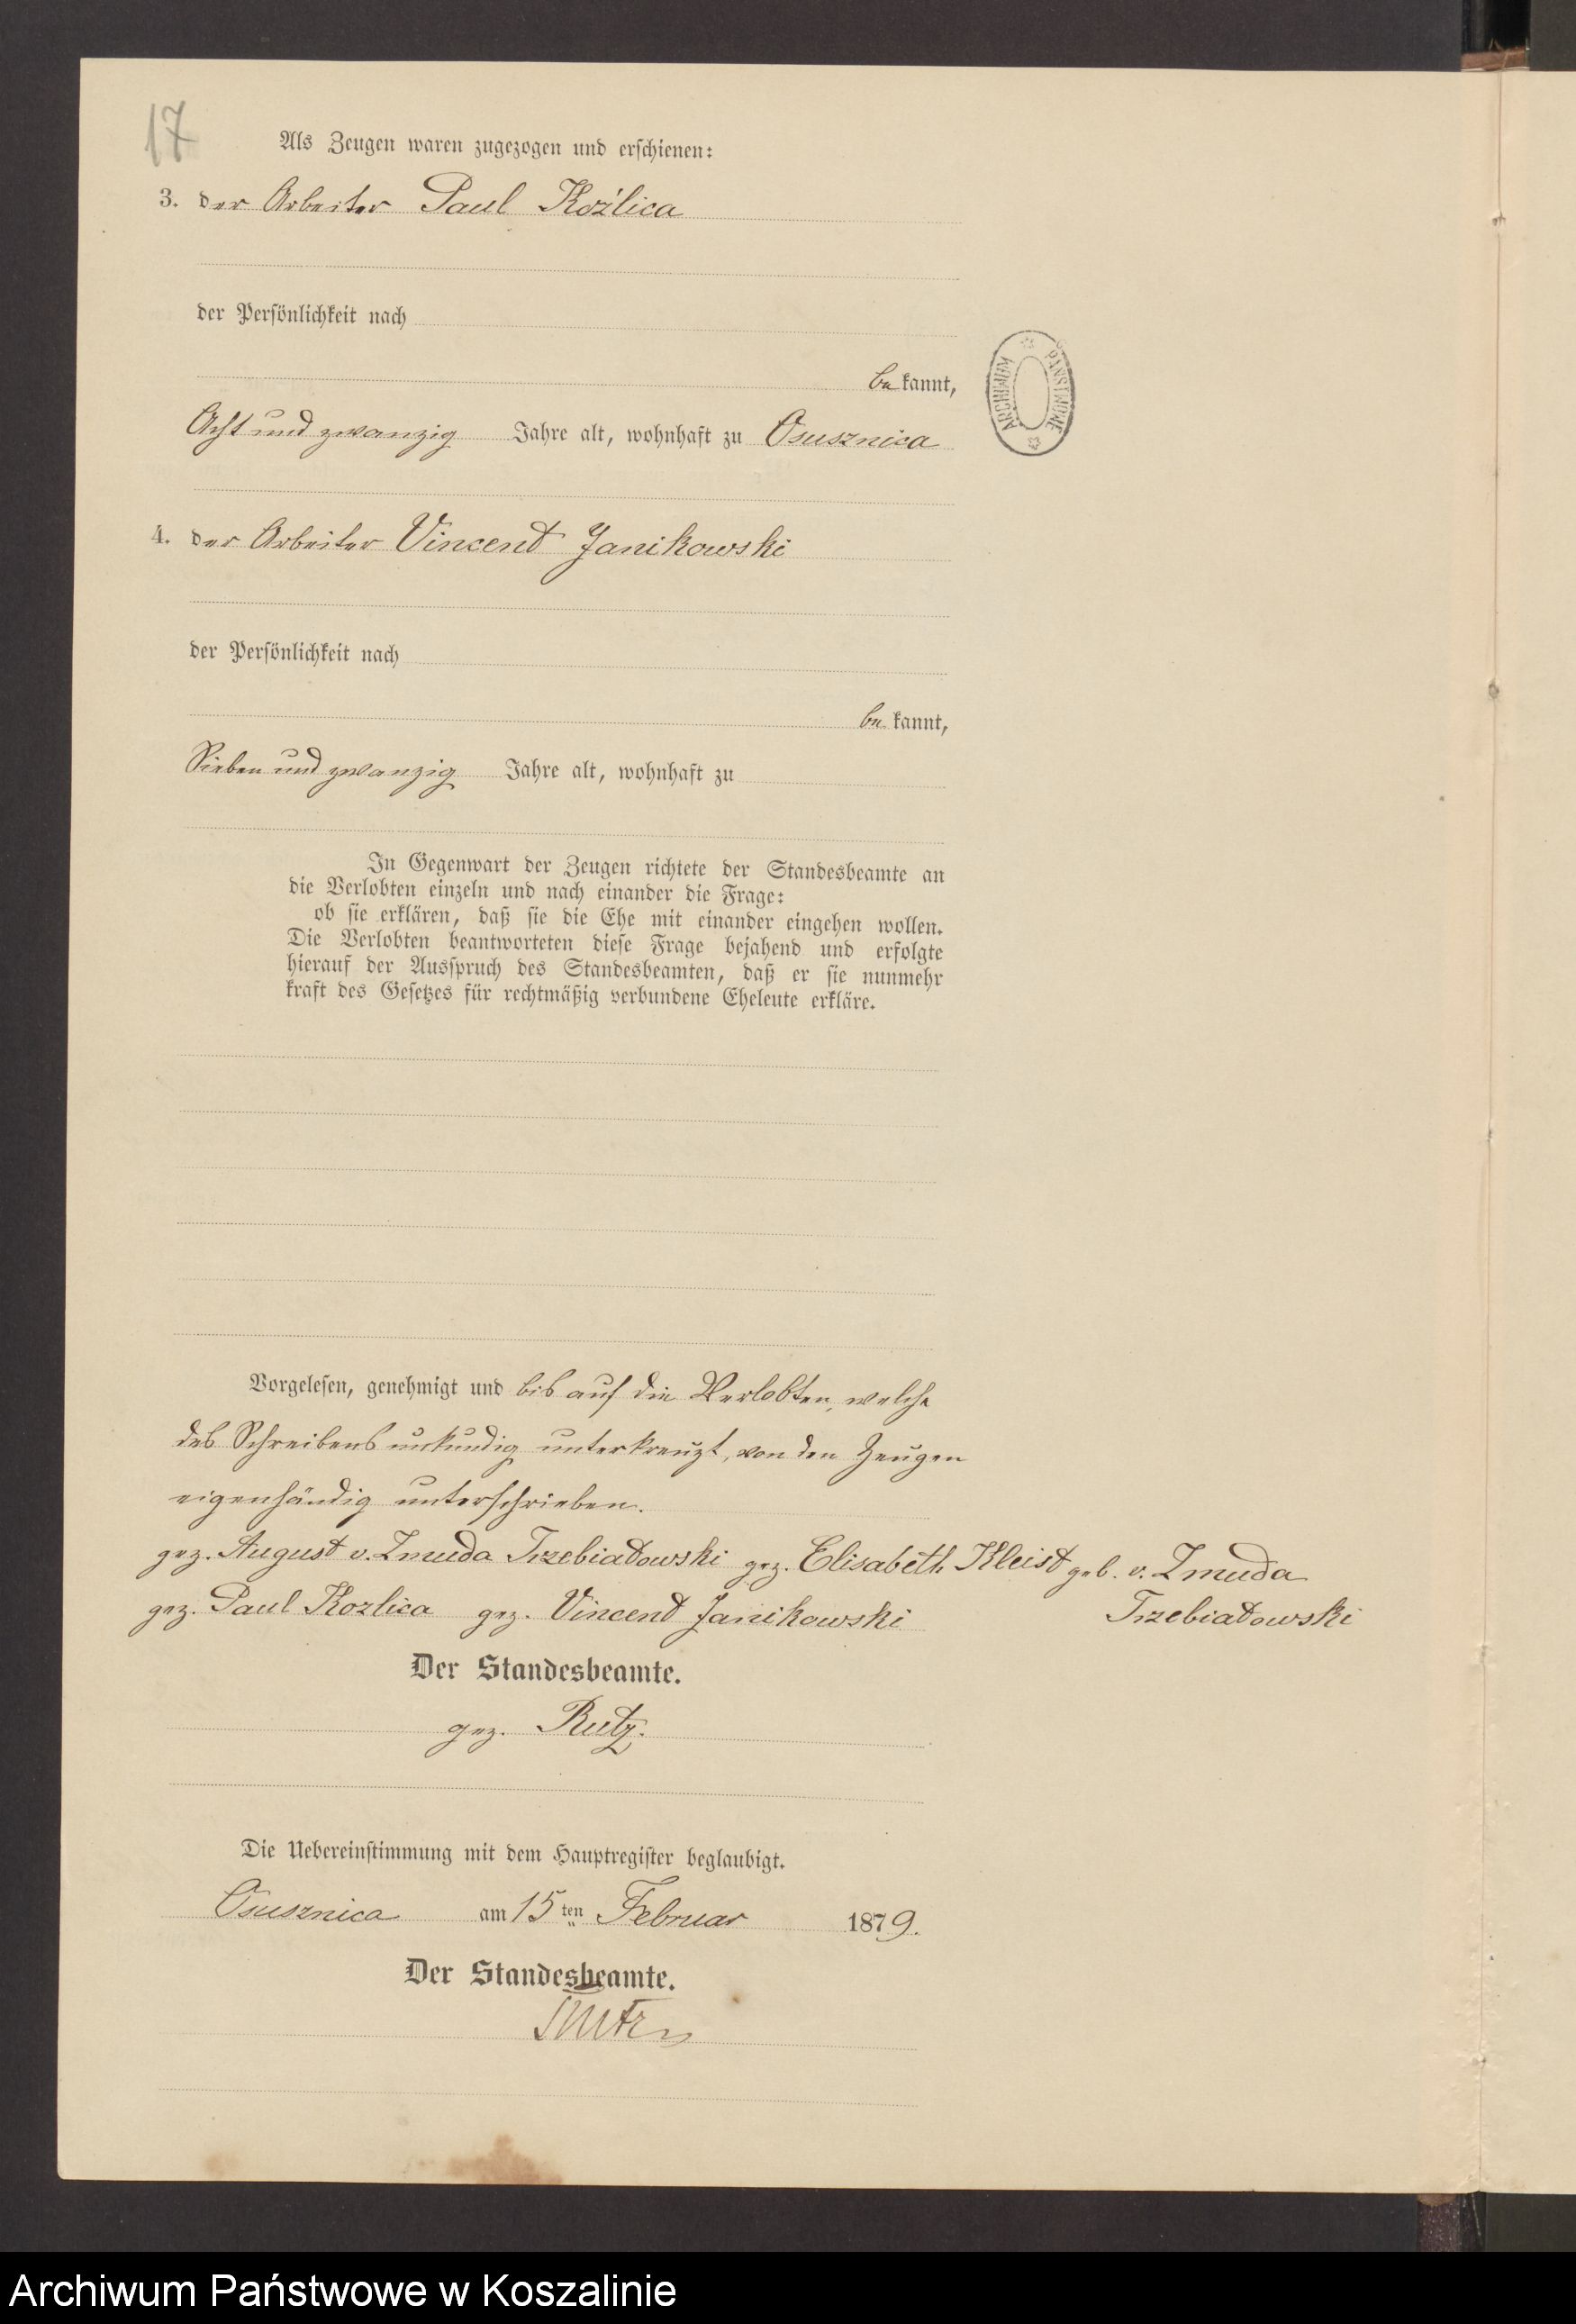 17
Als Zeugen waren zugezogen und erschienen:
3. der Arbeiter Paul Koźlica
der Persönlichkeit nach
be kannt,
Acht und zwanzig Jahre alt, wohnhaft zu Osusznica
4. der Arbeiter Vincend Janikowski
der Persönlichkeit nach
be kannt,
Sieben und zwanzig Jahre alt, wohnhaft zu
In Gegenwart der Zeugen richtete der Standesbeamte an
die Verlobten einzeln und nach einander die Frage:
ob sie erklären, daß sie die Ehe mit einander eingehen wollen.
Die Verlobten beantworteten diese Frage bejahend und erfolgte
hierauf der Ausspruch des Standesbeamten, daß er sie nunmehr
kraft des Gesetzes für rechtmäßig verbundene Eheleute erkläre.
Vorgelesen, genehmigt und bis auf die Verlobten, welche
des Schreibens unkundig unterkreuzt, von den Zeugen
eigenhändig unterschrieben.
gez. August v. Zmuda Trzebiadowski gez. Elisabeth Kleist geb. v. Zmuda
gez. Paul Kozlica gez. Vincend Janikowski Trzebiadowski
Der Standesbeamte.
gez. Rutz.
Die Uebereinstimmung mit dem Hauptregister beglaubigt.
Osusznica am 15 ten Februar 1879.
Der Standesbeamte.
Rutz
ARCHIWUM PAŃSTWOWE
Archiwum Państwowe w Koszalinie